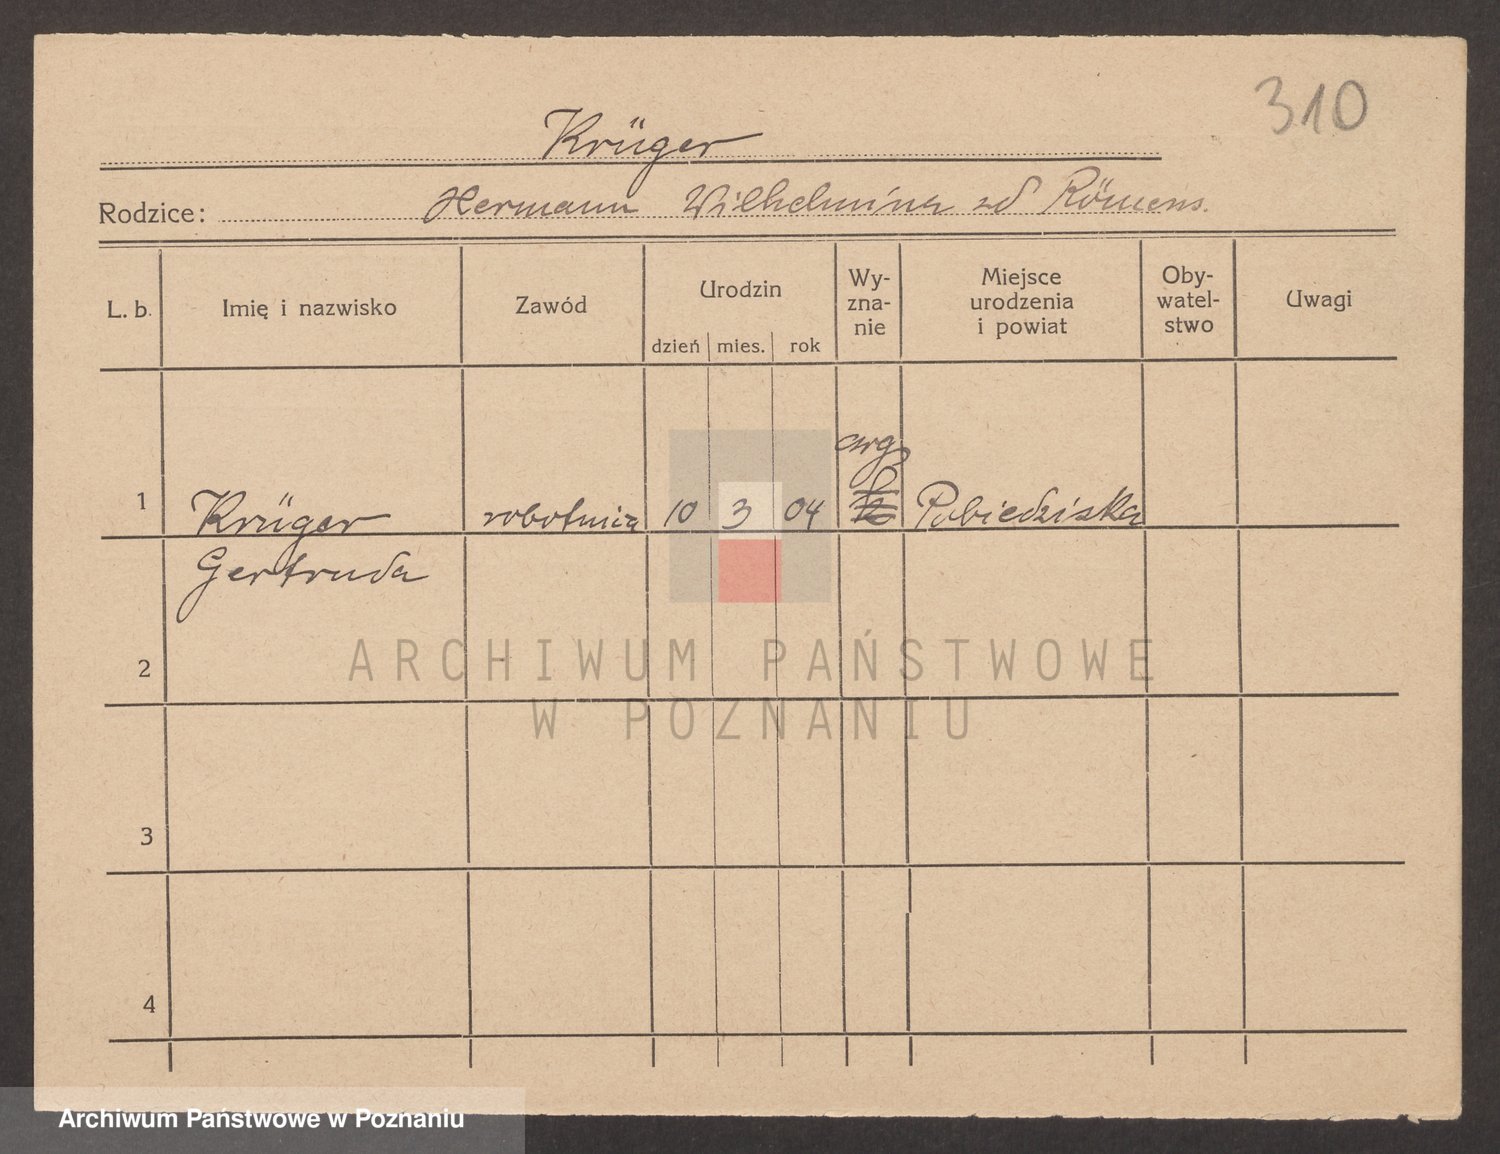 310
Krüger
Rodzice: Hermann Wilhelmina zd Römens.
L. b.
Imię i nazwisko
Zawód
Urodzin
dzień mies. rok
Wy-
zna-
nie
Miejsce
urodzenia
i powiat
Oby-
watel-
stwo
Uwagi
1 Krüger robotnica 10 3 04 Pobiedziska
Gertruda
2
3
4
ARCHIWUM PAŃSTWOWE
W POZNANIU
Archiwum Państwowe w Poznaniu